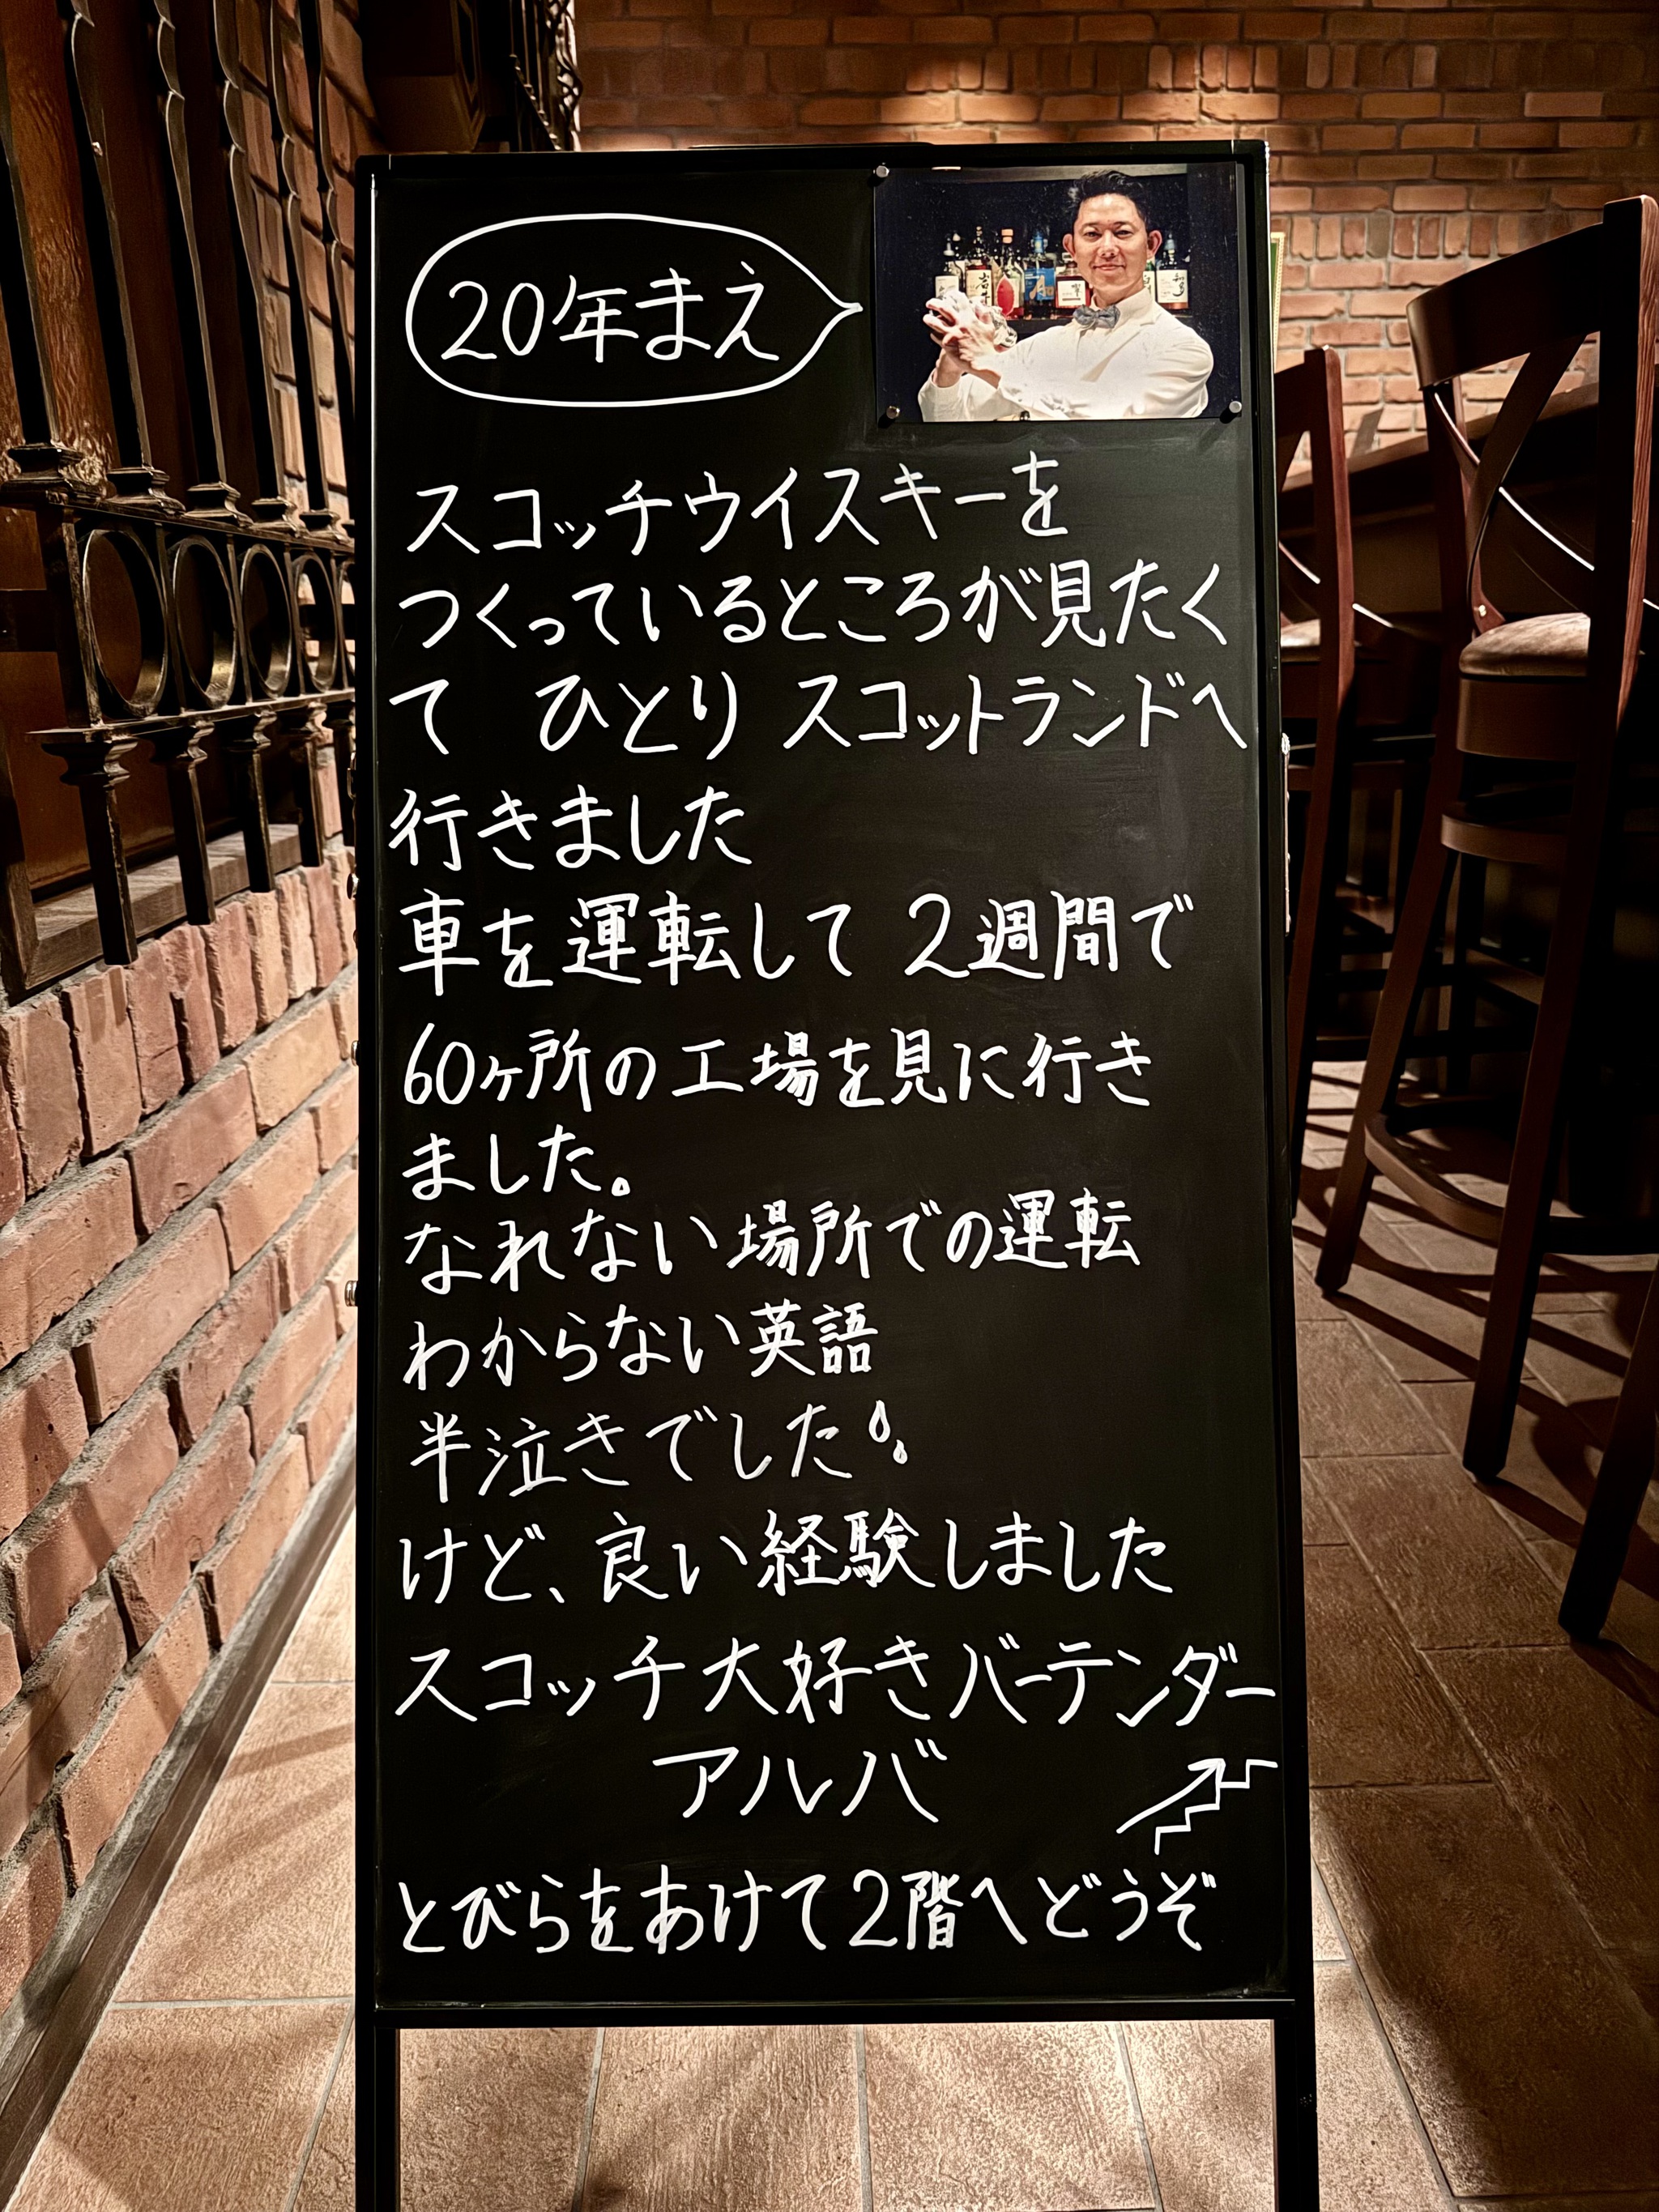 20年まえ
スコッチウイスキーを
つくっているところが見たく
て ひとり スコットランドへ
行きました
車を運転して 2週間で
60ヶ所の工場を見に行き
ました。
なれない場所での運転
わからない英語
半泣きでした
けど、良い経験しました
スコッチ大好きバーテンダー
アルバ
とびらをあけて2階へどうぞ